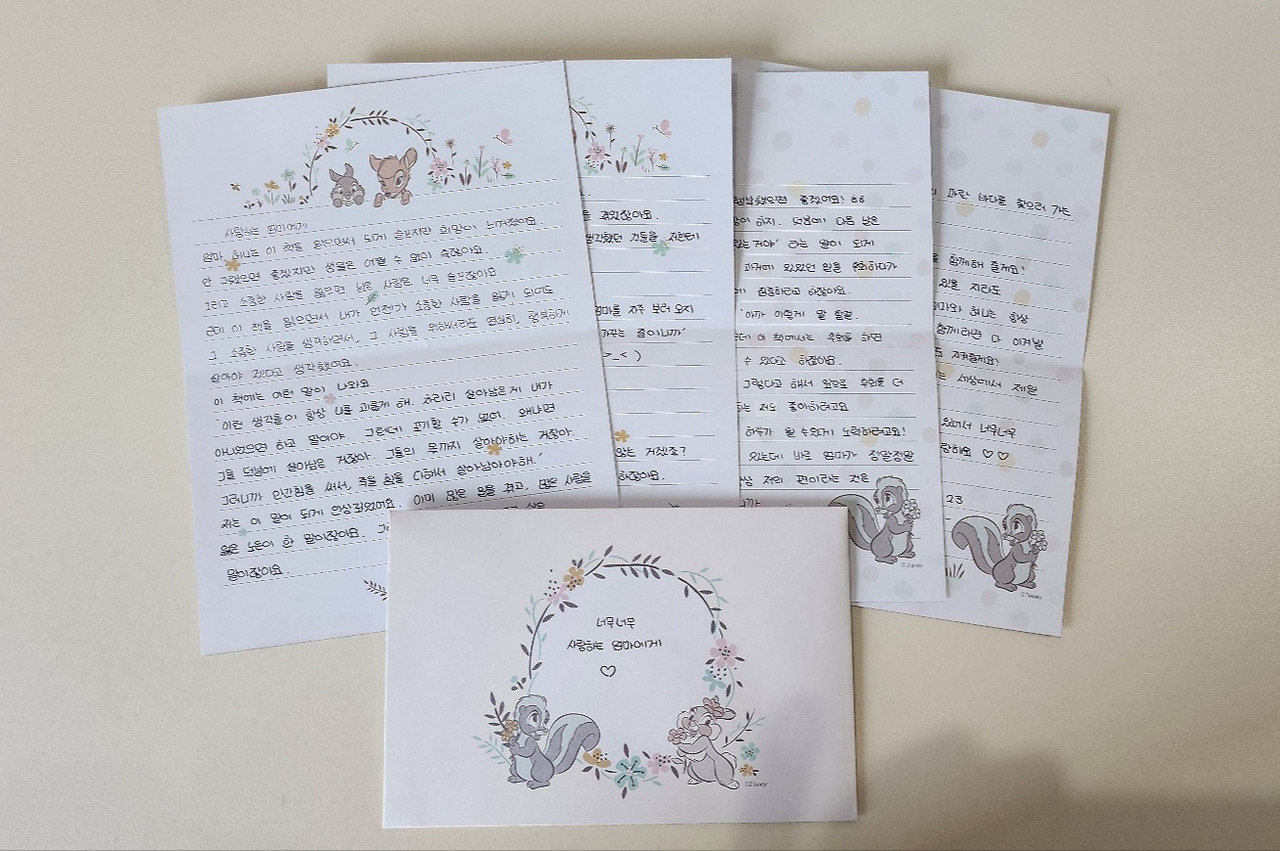 사랑하는 엄마에게
엄마, 허니는 이 책을 읽으면서 되게 슬프지만 희망이 느껴졌어요
안 그랬으면 좋겠지만 생물은 어쩔 수 없이 죽잖아요.
그리고 소중한 사람을 잃으면 남은 사람은 너무 슬프잖아요
근데 이 책을 읽으면서 내가 언젠가 소중한 사람을 잃게 되어도
그 소중한 사람을 생각하면서, 그 사람을 위해서라도 열심히, 행복하게
살아야 겠다고 생각했어요.
이 책에는 이런 말이 나와요
'이런 생각들이 항상 너를 괴롭게 해. 차라리 살아남은게 내가
아니었으면 하고 말이야. 그런데 포기할 수가 없어. 왜냐면
그들 덕분에 살아남은 거잖아. 그들의 몫까지 살아야하는 거잖아
그러니까 안간힘을 써서, 죽을 힘을 다해서 살아남아야해.'
저는 이 말이 되게 인상깊었어요. 이미 많은 일을 겪고, 많은 사람을
잃은 노든이 한 말이잖아요.
말이잖아요
겪었잖아요.
생각했던 것들을 저한테
엄마를 자주 보러 오지
가꾸는 중이니까'
>_< )
않는 거겠죠?
하잖아요.
했으면 좋겠어요! ㅎㅎ
많이 하지. 덕분에 다음 날은
있는거야' 라는 말이 되게
과거에 있었던 일을 후회하다가
에 집중하라고 하잖아요.
'아까 이렇게 말 할걸.
근데 이 책에서는 후회를 하면
수 있다고 하잖아요.
그렇다고 해서 앞으로 후회를 더
하는 저도 좋아하려고요
하루가 될 수있게 노력하려고요!
있는데 바로 엄마가 정말정말
항상 저의 편이라는 것은
니까
파란 바다를 찾으러 가는
함께해 줄게요!
있을 지라도
엄마와 허니는 항상
함께라면 다 이겨낼
지켜줄게요!
는 세상에서 제일
있어서 너무너무
사랑해요 ♡♡
23
©Disney
©Disney
너무너무
사랑하는 엄마에게
♡
©Disney